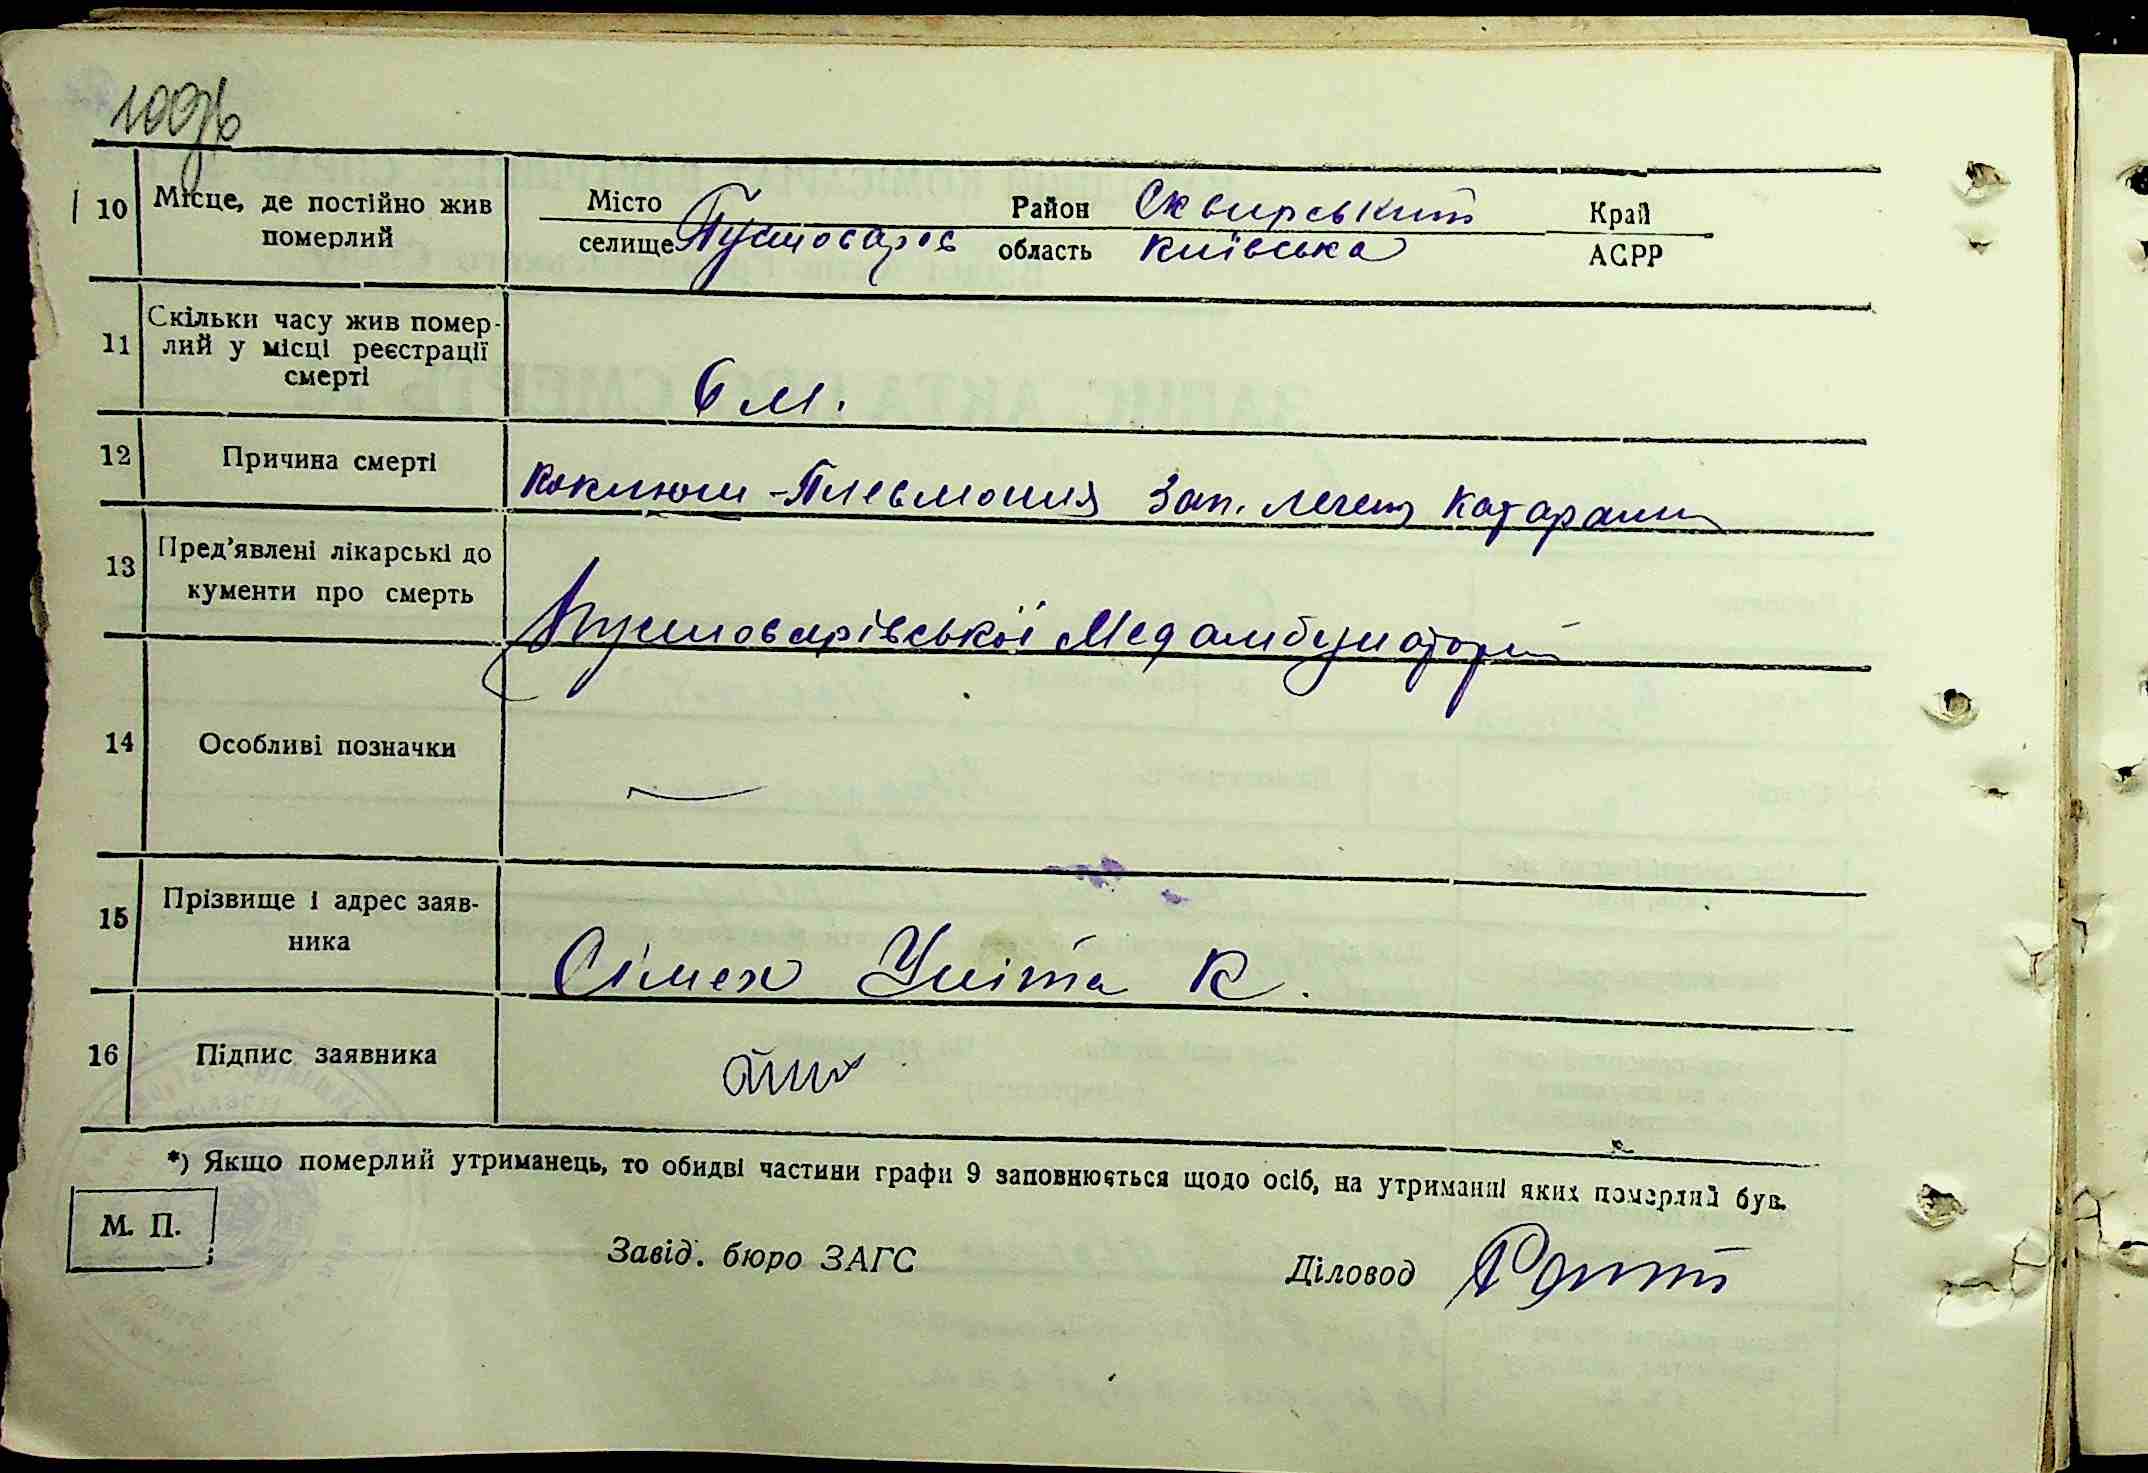 100
10 Місце, де постійно жив померлий
Місто
селище Пустовар
Район Сквирський
область Київська
Край
АСРР
11 Скільки часу жив помер-
лий у місці реєстрації
смерті
6 м.
12 Причина смерті
Коклюш - Плевмония Зап. легень
13 Пред'явлені лікарські до
кументи про смерть
Пустоварівської Медамбулаторії
14 Особливі позначки
—
15 Прізвище і адрес заяв-
ника
Сімех Уліта К.
16 Підпис заявника
*) Якщо померлий утриманець, то обидві частини графи 9 заповнюється щодо осіб, на утриманні яких померлий був.
М. П.
Завід. бюро ЗАГС
Діловод